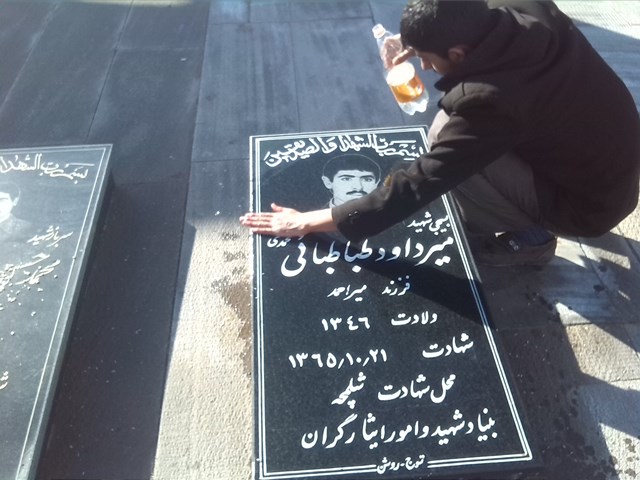 بسم رب الشهداء والصدیقین
بسیجی شهید
میرداود طباطبائی
فرزند میراحمد
ولادت ۱۳۴۶
شهادت ۱۳۶۵٫۱۰٫۲۱
محل شهادت شلمچه
بنیاد شهید و امور ایثارگران
تورج-روشن
بسم رب الشهدا
سرباز شهید